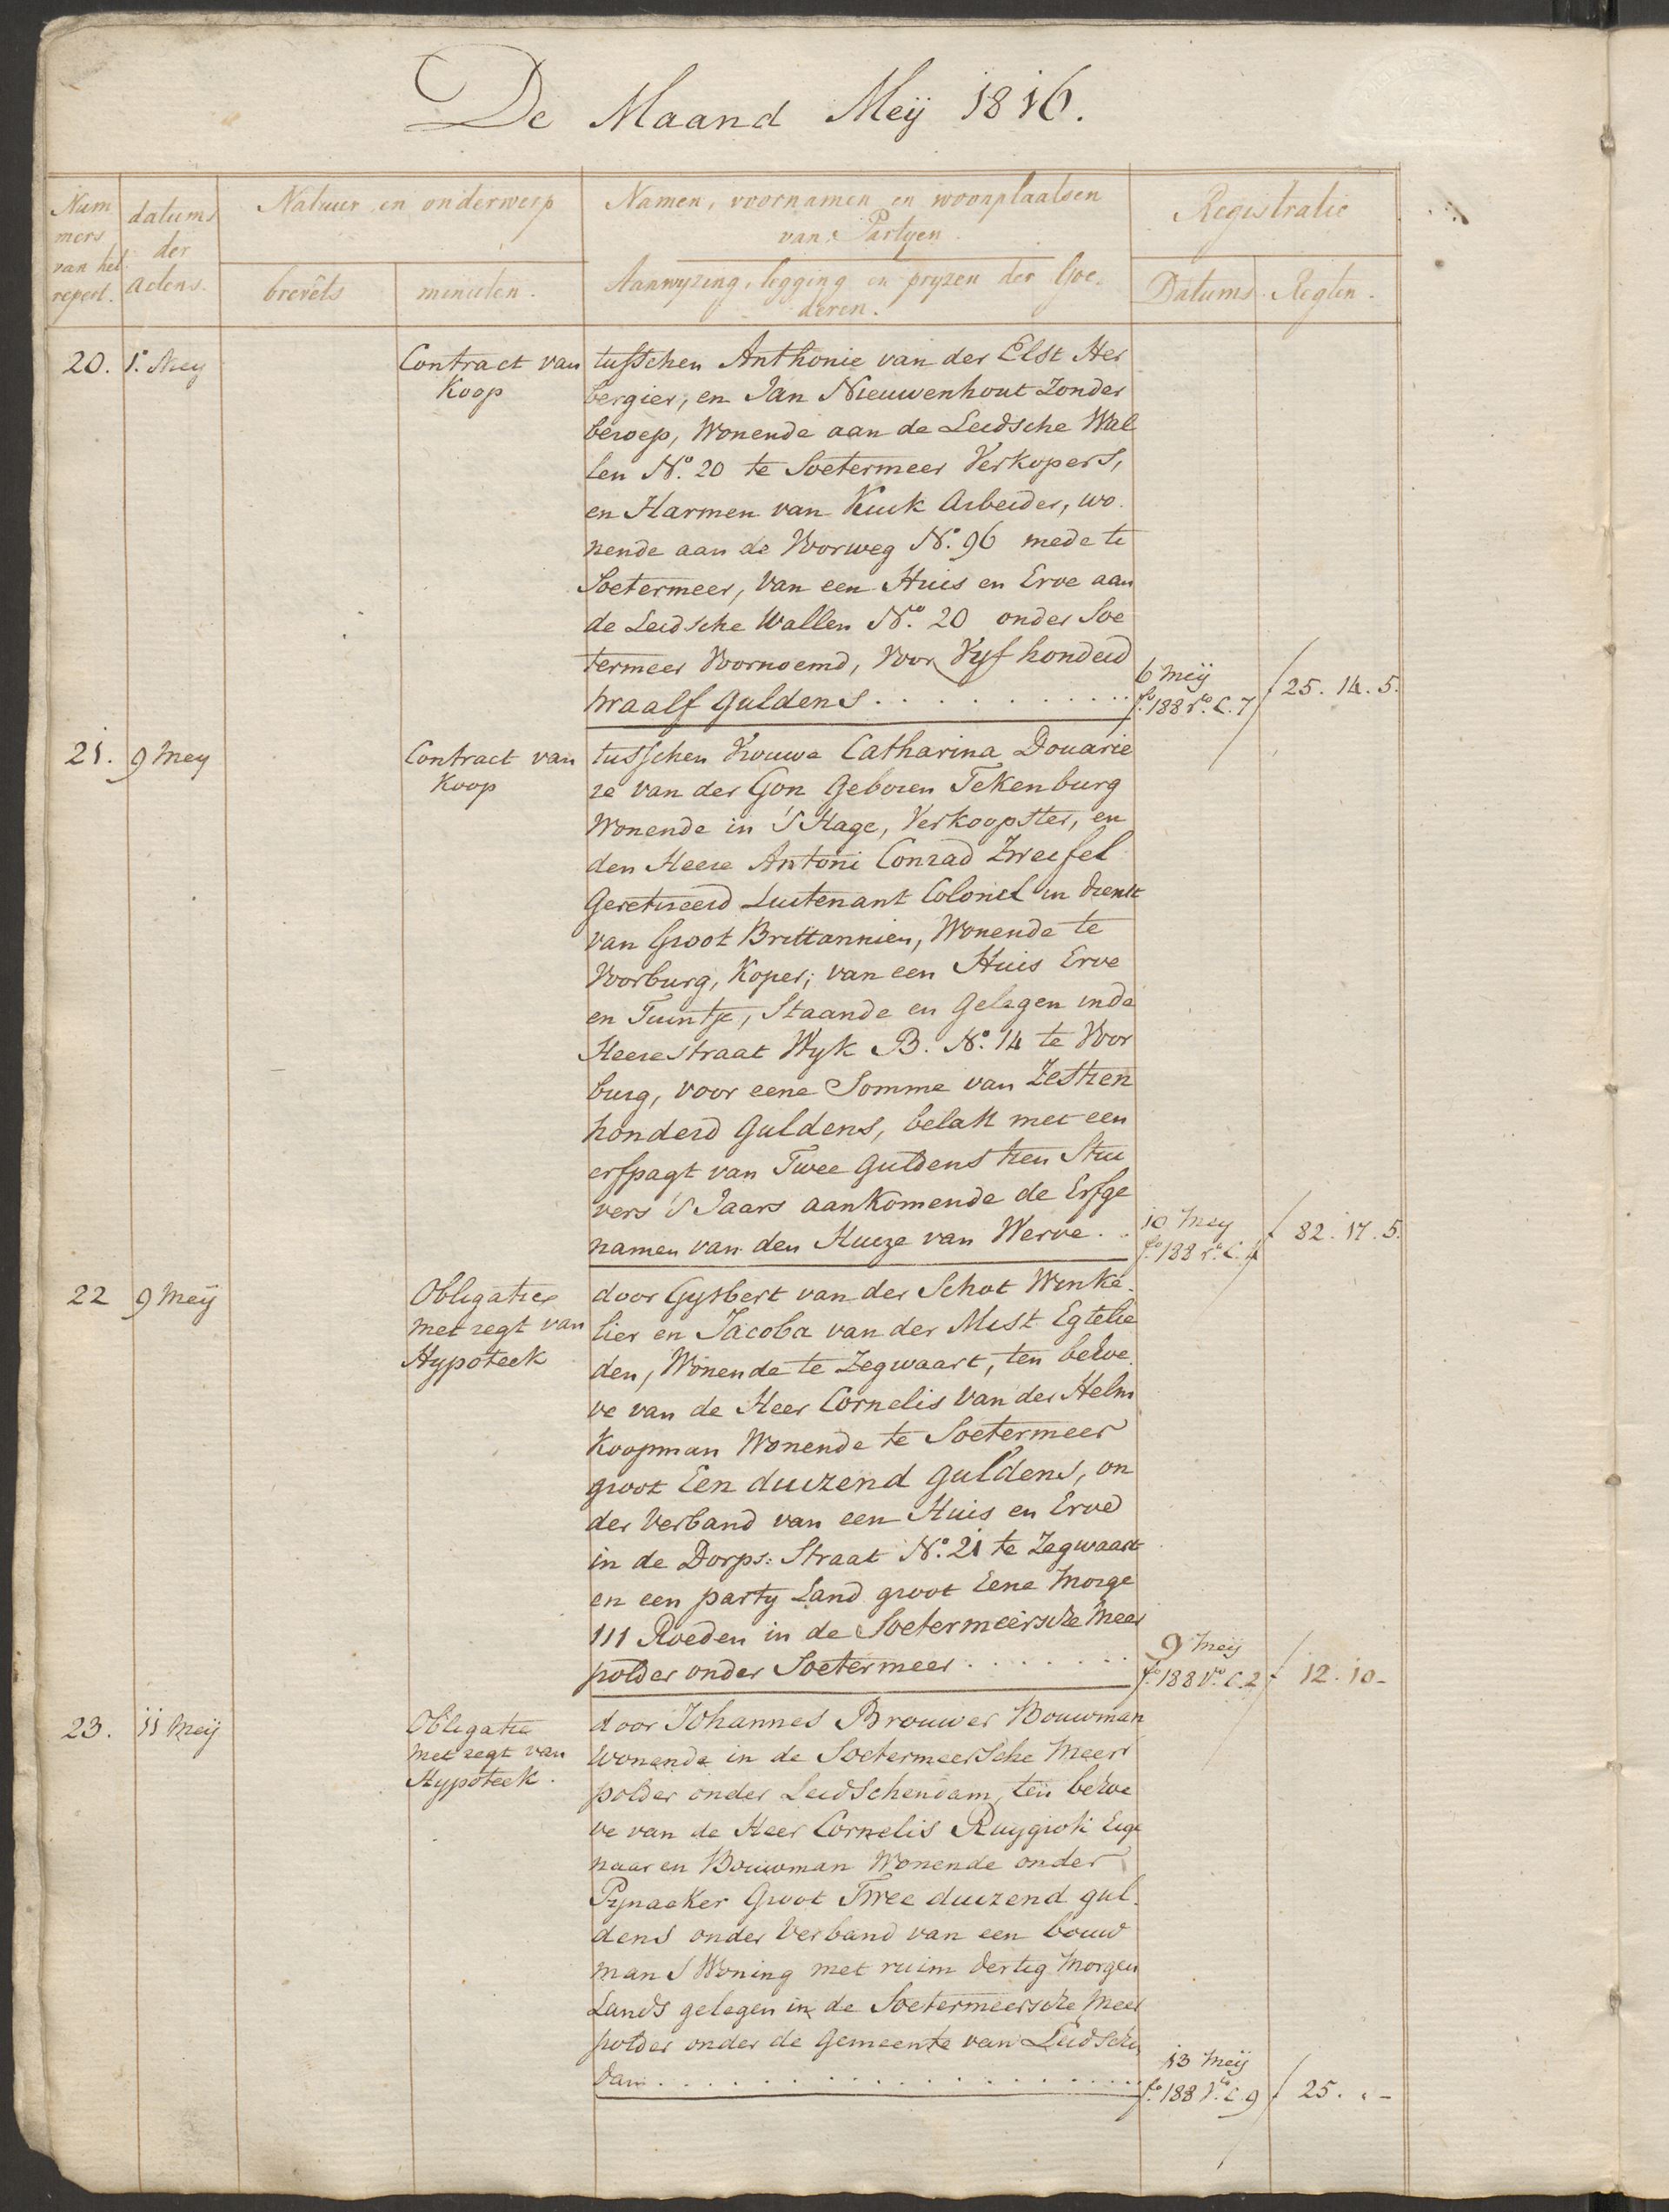 De Maand Meij 1816.
Num
mers
van het
repert.
datums
der
actens.
Natuur en onderwerp
brevêts
minuten.
Namen, voornamen en woonplaatsen
van Partyen.
Aanwyzing, legging en pryzen der Goe-
deren.
Registratie
Datums. Regten.
20. 1e. Mey
Contract van
Koop
tusschen Anthonie van der Elst Her
bergier, en Jan Nieuwenhout Zonder
beroep, Wonende aan de Leidsche Wal
len No. 20 te Soetermeer Verkopers,
en Harmen van Kuik Arbeider, wo
nende aan de Voorweg No. 96 mede te
Soetermeer, Van een Huis en Erve aan
de Leidsche Wallen No. 20 onder Soe
termeer Voornoemd, Voor Vyf honderd
twaalf Guldens . . . . . . . . .
6 Meij
fo. 188 ro. C. 7
f 25. 14. 5.
21. 9 Mey
Contract van
Koop
tusschen Vrouwe Catharina Douarie
re van der Gon Geboren Tekenburg
Wonende in 's Hage, Verkoopster, en
den Heere Antoni Conrad Zweifel
Geretireerd Luitenant Colonel in dienst
van Groot Brittannien, Wonende te
Voorburg, Koper; van een Huis Erve
en Tuintje, Staande en Gelegen in de
Heerestraat Wyk B. No. 14 te Voor
burg, voor eene Somme van Zestien
honderd Guldens, belast met een
erfpagt van Twee Guldens tien Stui
vers 's Jaars aankomende de Erfge
namen van den Huize van Werve . .
10 Mey
fo. 188 ro. C. 4
f 82. 17. 5.
22 9 Meij
Obligatie
met regt van
Hypoteek
door Gysbert van der Schot Winke
lier en Jacoba van der Mist Egtelie
den, Wonende te Zegwaart, ten behoe
ve van de Heer Cornelis Van der Helm
Koopman Wonende te Soetermeer
groot Een duizend guldens, on
der Verband van een Huis en Erve
in de Dorps: Straat No. 21 te Zegwaart
en een party Land groot Eene Morge
111 Roeden in de Soetermeersche Meer
polder onder Soetermeer . . . . . . .
9 Meij
fo. 188 Vo. C. 2
f 12. 10 -
23. 11 Meij
Obligatie
met regt van
Hypoteek.
door Johannes Brouwer Bouwman
wonende in de Soetermeersche Meer
polder onder Leidschendam, ten behoe
ve van de Heer Cornelis Ruygrok Eige
naar en Bouwman Wonende onder
Pynacker Groot Twee duizend gul
dens onder Verband van een bouw
mans Woning met ruim dertig Morgen
Lands gelegen in de Soetermeersche Meer
polder onder de Gemeente van Leidschen
dam . . . . . . . . . . . . . . . .
13 Meij
fo. 188 Vo. C. 9
f 25. „ -